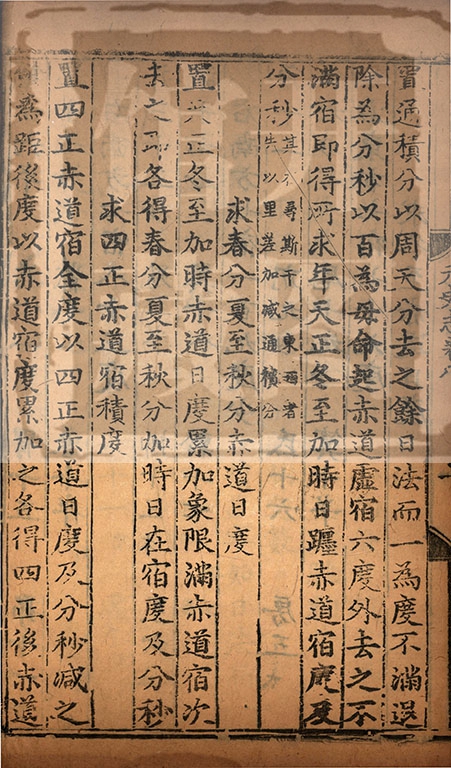 置通積分以周天分去之餘日法而一為度不滿退
除為分秒以百為母命起赤道虛宿六度外去之不
滿宿即得所求年天正冬至加時日躔赤道宿度及
分秒其在尋斯干之東西者
先以里差加減通積分
求春分夏至秋分赤道日度
置天正冬至加時赤道日度累加象限滿赤道宿次
去之即各得春分夏至秋分加時日在宿度及分秒
求四正赤道宿積度
置四正赤道宿全度以四正赤道日度及分秒減之
為距後度以赤道宿度累加之各得四正後赤道